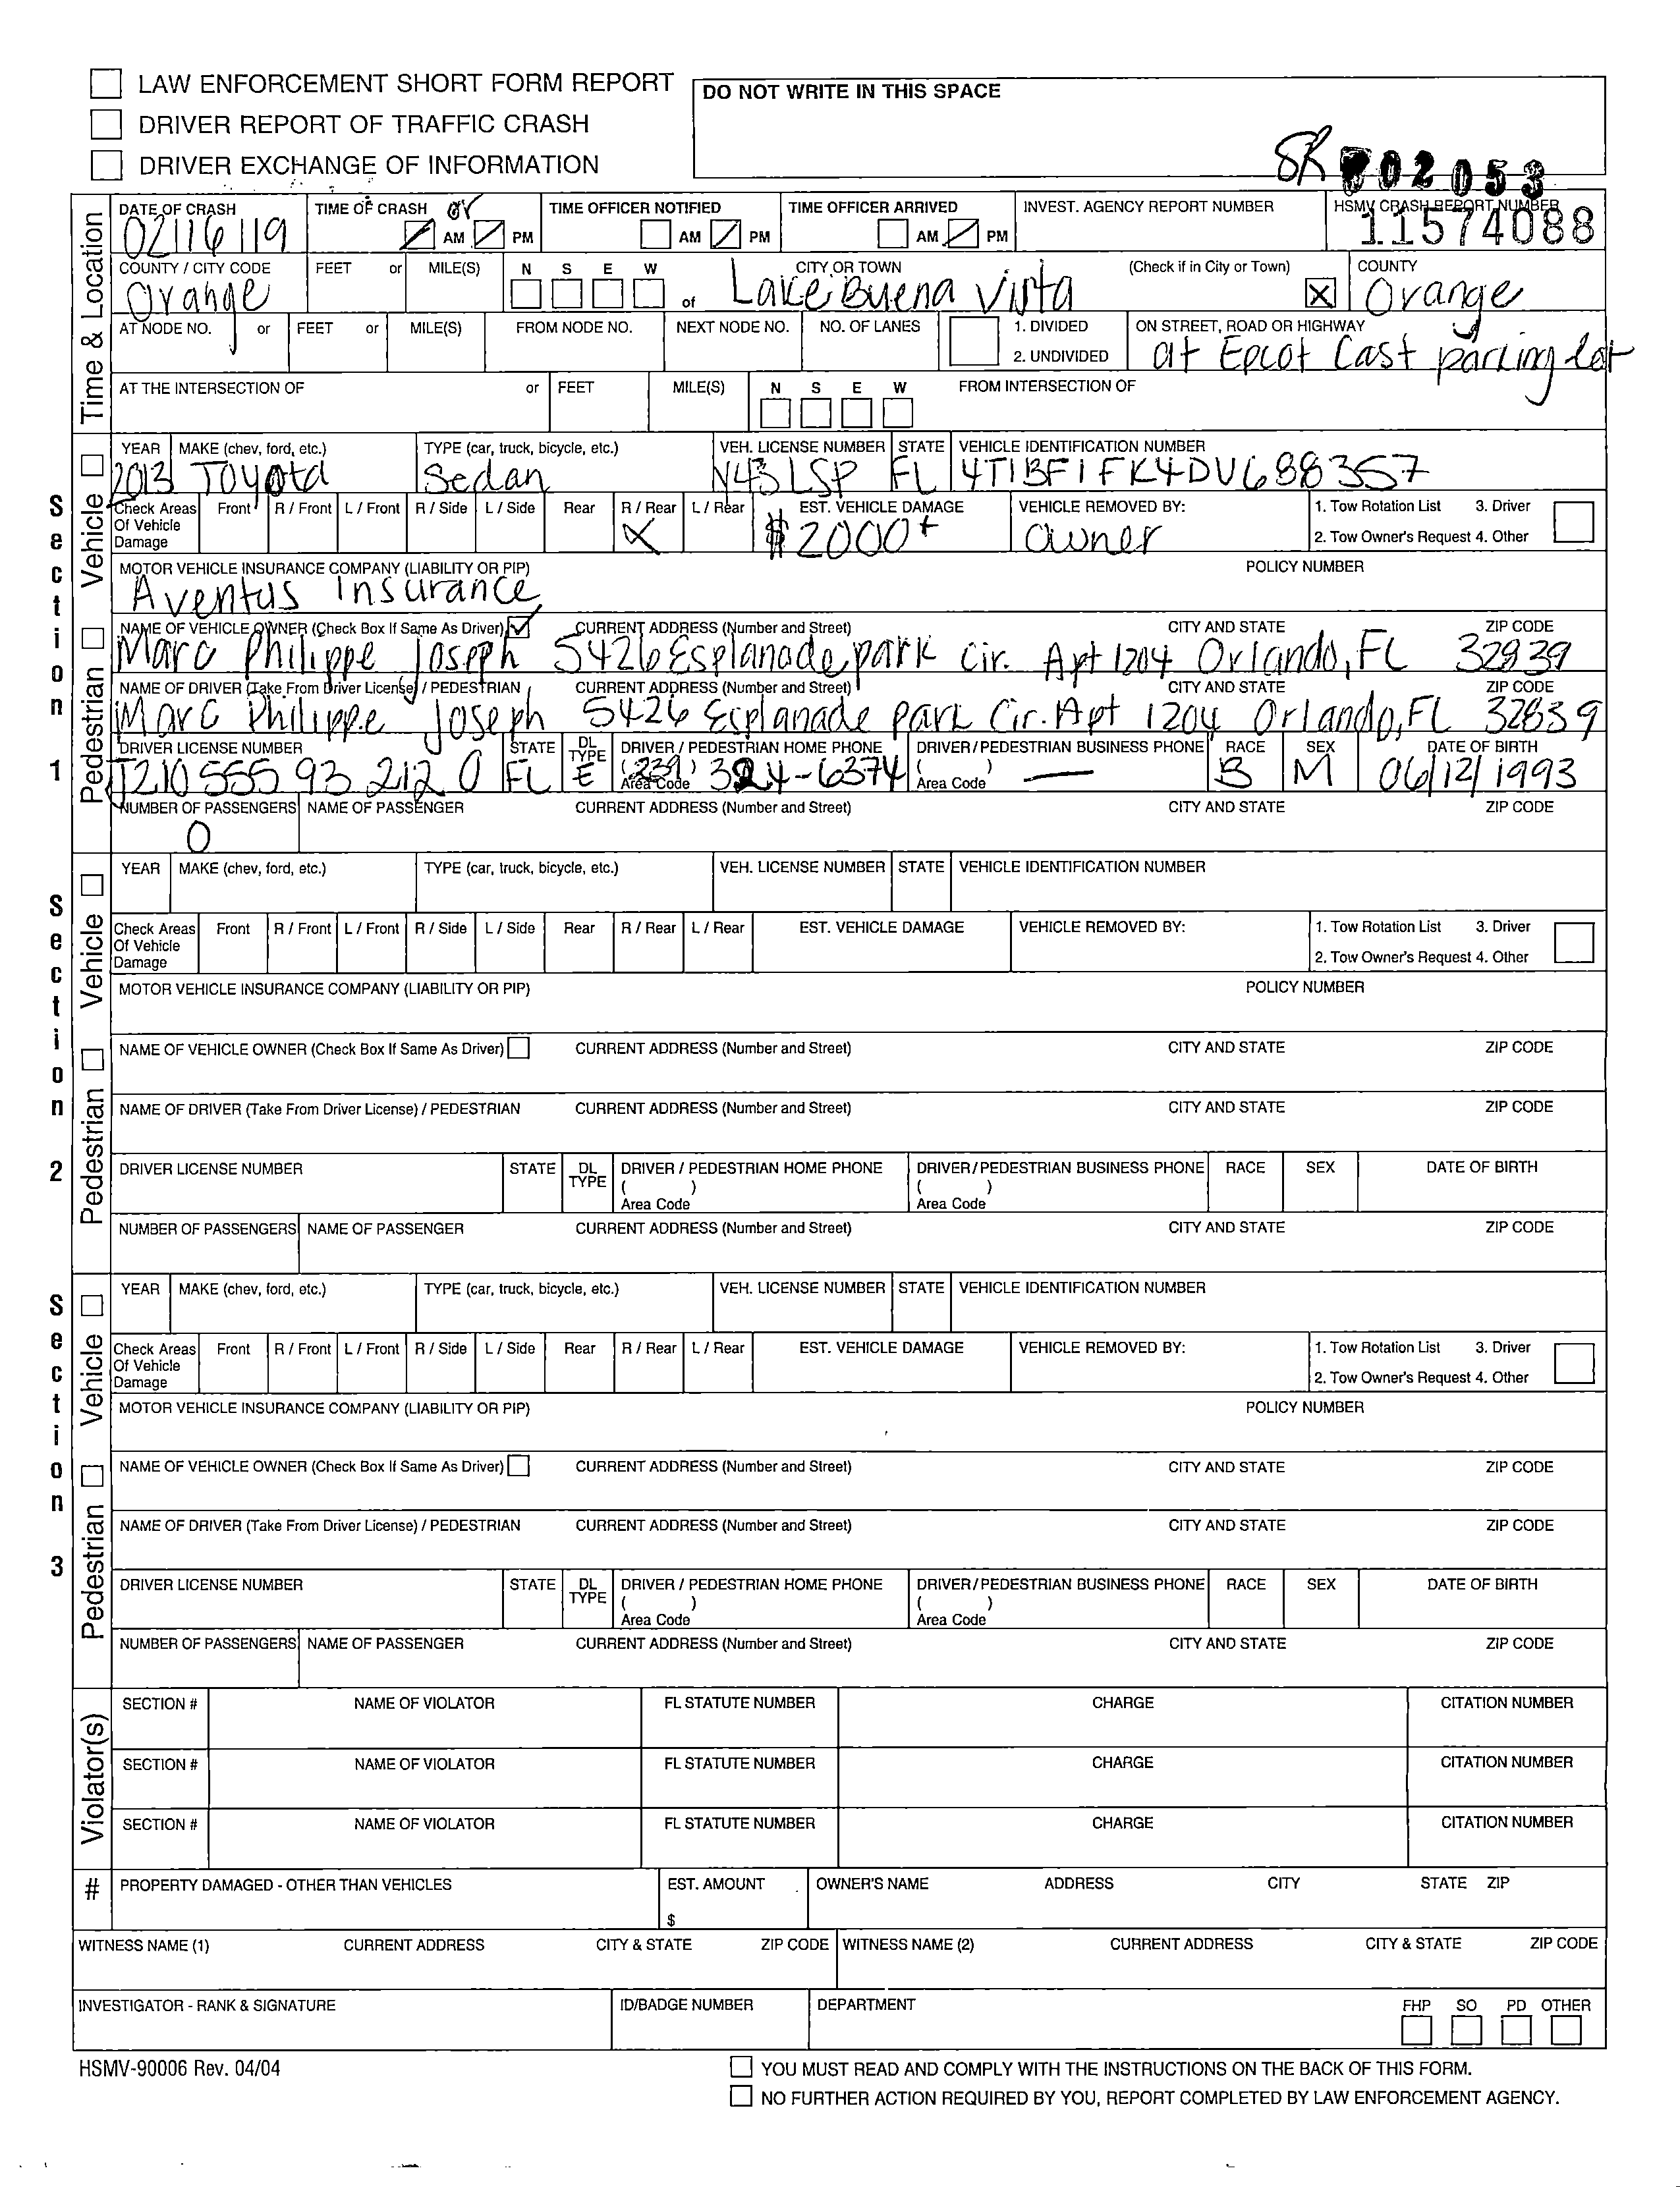 LAW ENFORCEMENT SHORT FORM REPORT
DRIVER REPORT OF TRAFFIC CRASH
DRIVER EXCHANGE OF INFORMATION
DO NOT WRITE IN THIS SPACE
SR 02053
DATE OF CRASH TIME OF CRASH or TIME OFFICER NOTIFIED TIME OFFICER ARRIVED INVEST. AGENCY REPORT NUMBER HSMV CRASH REPORT NUMBER
02/16/19 AM PM AM PM AM PM 11574088
COUNTY / CITY CODE FEET or MILE(S) N S E W CITY OR TOWN (Check if in City or Town) COUNTY
Orange of Lake Buena Vista X Orange
AT NODE NO. or FEET or MILE(S) FROM NODE NO. NEXT NODE NO. NO. OF LANES 1. DIVIDED ON STREET, ROAD OR HIGHWAY
2. UNDIVIDED at Epcot Cast parking lot
AT THE INTERSECTION OF or FEET MILE(S) N S E W FROM INTERSECTION OF
Time & Location
YEAR MAKE (chev, ford, etc.) TYPE (car, truck, bicycle, etc.) VEH. LICENSE NUMBER STATE VEHICLE IDENTIFICATION NUMBER
2013 Toyota Sedan N43LSP FL 4T1BF1FK4DU688357
Check Areas Of Vehicle Damage Front R / Front L / Front R / Side L / Side Rear R / Rear L / Rear EST. VEHICLE DAMAGE VEHICLE REMOVED BY: 1. Tow Rotation List 3. Driver
X $2000+ Owner 2. Tow Owner's Request 4. Other
MOTOR VEHICLE INSURANCE COMPANY (LIABILITY OR PIP) POLICY NUMBER
Aventus Insurance
NAME OF VEHICLE OWNER (Check Box If Same As Driver) CURRENT ADDRESS (Number and Street) CITY AND STATE ZIP CODE
Marc Philippe Joseph 5426 Esplanade park Cir. Apt 1204 Orlando, FL 32839
NAME OF DRIVER (Take From Driver License) / PEDESTRIAN CURRENT ADDRESS (Number and Street) CITY AND STATE ZIP CODE
Marc Philippe Joseph 5426 Esplanade park Cir. Apt 1204 Orlando, FL 32839
DRIVER LICENSE NUMBER STATE DL TYPE DRIVER / PEDESTRIAN HOME PHONE DRIVER / PEDESTRIAN BUSINESS PHONE RACE SEX DATE OF BIRTH
J210 555 93 212 0 FL E (239) 324-6374 ( ) — B M 06/12/1993
Area Code Area Code
NUMBER OF PASSENGERS NAME OF PASSENGER CURRENT ADDRESS (Number and Street) CITY AND STATE ZIP CODE
0
Section 1
Pedestrian Vehicle
YEAR MAKE (chev, ford, etc.) TYPE (car, truck, bicycle, etc.) VEH. LICENSE NUMBER STATE VEHICLE IDENTIFICATION NUMBER
Check Areas Of Vehicle Damage Front R / Front L / Front R / Side L / Side Rear R / Rear L / Rear EST. VEHICLE DAMAGE VEHICLE REMOVED BY: 1. Tow Rotation List 3. Driver
2. Tow Owner's Request 4. Other
MOTOR VEHICLE INSURANCE COMPANY (LIABILITY OR PIP) POLICY NUMBER
NAME OF VEHICLE OWNER (Check Box If Same As Driver) CURRENT ADDRESS (Number and Street) CITY AND STATE ZIP CODE
NAME OF DRIVER (Take From Driver License) / PEDESTRIAN CURRENT ADDRESS (Number and Street) CITY AND STATE ZIP CODE
DRIVER LICENSE NUMBER STATE DL TYPE DRIVER / PEDESTRIAN HOME PHONE DRIVER / PEDESTRIAN BUSINESS PHONE RACE SEX DATE OF BIRTH
( ) ( )
Area Code Area Code
NUMBER OF PASSENGERS NAME OF PASSENGER CURRENT ADDRESS (Number and Street) CITY AND STATE ZIP CODE
Section 2
Pedestrian Vehicle
YEAR MAKE (chev, ford, etc.) TYPE (car, truck, bicycle, etc.) VEH. LICENSE NUMBER STATE VEHICLE IDENTIFICATION NUMBER
Check Areas Of Vehicle Damage Front R / Front L / Front R / Side L / Side Rear R / Rear L / Rear EST. VEHICLE DAMAGE VEHICLE REMOVED BY: 1. Tow Rotation List 3. Driver
2. Tow Owner's Request 4. Other
MOTOR VEHICLE INSURANCE COMPANY (LIABILITY OR PIP) POLICY NUMBER
NAME OF VEHICLE OWNER (Check Box If Same As Driver) CURRENT ADDRESS (Number and Street) CITY AND STATE ZIP CODE
NAME OF DRIVER (Take From Driver License) / PEDESTRIAN CURRENT ADDRESS (Number and Street) CITY AND STATE ZIP CODE
DRIVER LICENSE NUMBER STATE DL TYPE DRIVER / PEDESTRIAN HOME PHONE DRIVER / PEDESTRIAN BUSINESS PHONE RACE SEX DATE OF BIRTH
( ) ( )
Area Code Area Code
NUMBER OF PASSENGERS NAME OF PASSENGER CURRENT ADDRESS (Number and Street) CITY AND STATE ZIP CODE
Section 3
Pedestrian Vehicle
SECTION # NAME OF VIOLATOR FL STATUTE NUMBER CHARGE CITATION NUMBER
SECTION # NAME OF VIOLATOR FL STATUTE NUMBER CHARGE CITATION NUMBER
SECTION # NAME OF VIOLATOR FL STATUTE NUMBER CHARGE CITATION NUMBER
Violator(s)
# PROPERTY DAMAGED - OTHER THAN VEHICLES EST. AMOUNT OWNER'S NAME ADDRESS CITY STATE ZIP
$
WITNESS NAME (1) CURRENT ADDRESS CITY & STATE ZIP CODE WITNESS NAME (2) CURRENT ADDRESS CITY & STATE ZIP CODE
INVESTIGATOR - RANK & SIGNATURE ID/BADGE NUMBER DEPARTMENT FHP SO PD OTHER
HSMV-90006 Rev. 04/04
YOU MUST READ AND COMPLY WITH THE INSTRUCTIONS ON THE BACK OF THIS FORM.
NO FURTHER ACTION REQUIRED BY YOU, REPORT COMPLETED BY LAW ENFORCEMENT AGENCY.